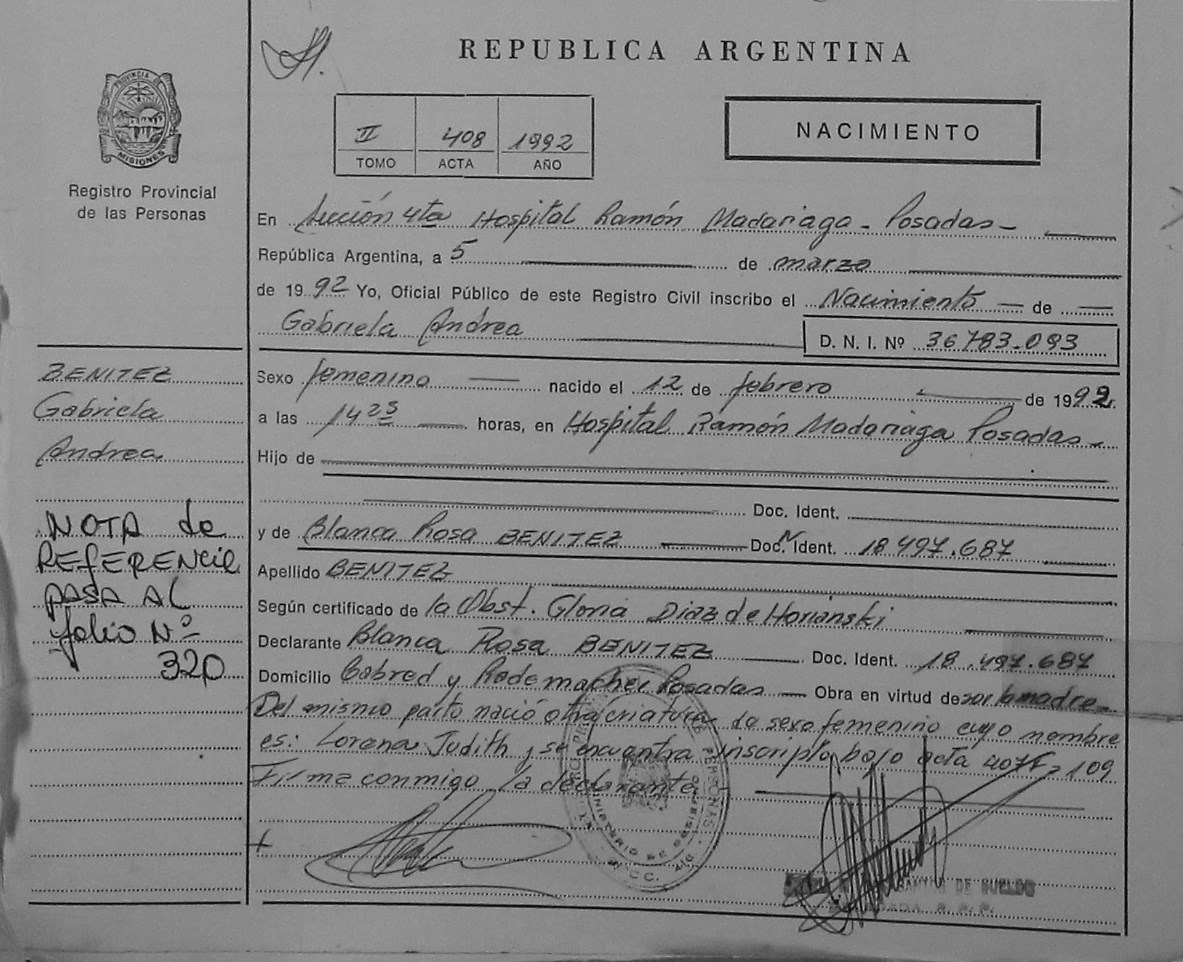 REPUBLICA ARGENTINA
PROVINCIA DE
MISIONES
Registro Provincial
de las Personas
II 408 1992
TOMO ACTA AÑO
NACIMIENTO
En Sección 4ta Hospital Ramón Madariaga - Posadas -
República Argentina, a 5 de marzo
de 1992 Yo, Oficial Público de este Registro Civil inscribo el Nacimiento de
Gabriela Andrea
D. N. I. Nº 36783.093
BENITEZ
Gabriela
Andrea
Sexo femenino nacido el 12 de febrero de 1992.
a las 14 25 horas, en Hospital Ramón Madariaga Posadas -
Hijo de
Doc. Ident.
NOTA de
REFERENCIA
PASA AL
folio Nº
320
y de Blanca Rosa BENITEZ Doc. Ident. 18.497.687
Apellido BENITEZ
Según certificado de la Obst. Gloria Diaz de Horianski
Declarante Blanca Rosa BENITEZ Doc. Ident. 18.497.687
Domicilio Cabred y Rademacher Posadas Obra en virtud de ser la madre -
Del mismo parto nació otra criatura de sexo femenino cuyo nombre
es: Lorena Judith y se encuentra inscripto bajo acta 407 F: 109
Firma conmigo la declarante